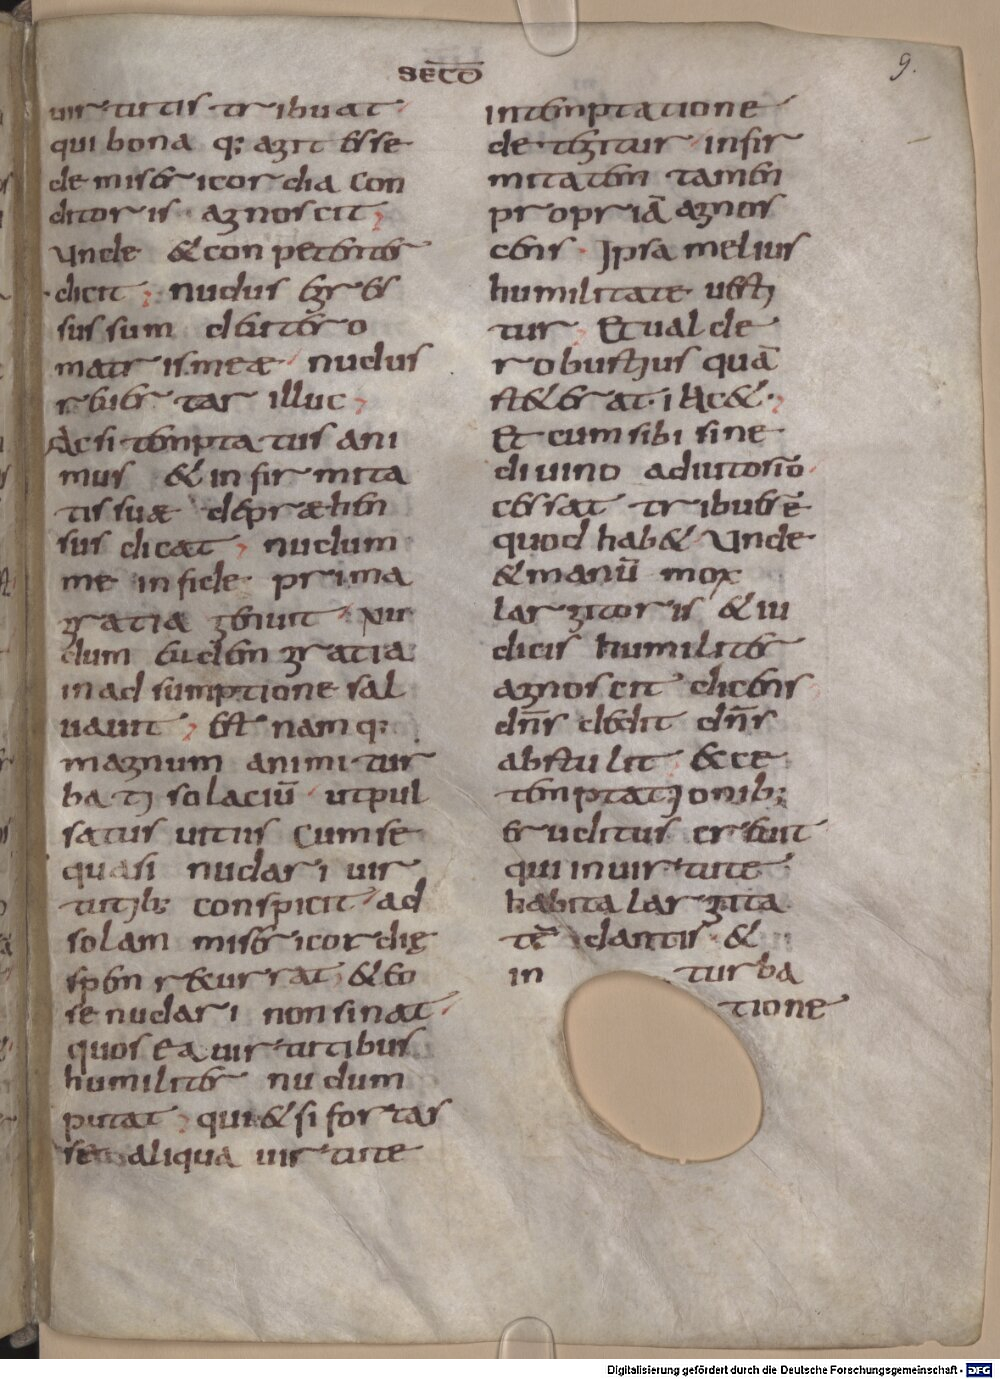 secōo
9.
uirtutis tribuat
qui bona q: agit esse
de misericordia con
ditoris agnoscit;
Unde & conpetenter
dicit; nudus egres
sus sum de utero
matris meæ nudus
reuertar illuc;
Ac si temptatus ani
mus & infirmita
tis suæ depræhen
sus dicat; nudum
me in fide prima
gratia genuit nu
dum eudem gratia
in adsumptione sal
uauit; est namq:
magnum animi tur
bati solaciū ut pul
satus uitiis cum se
quasi nudari uir
tutib; conspicit ad
solam misericordię
spem recurrat & eo
se nudari non sinat
quo se a uirtutibus
humiliter nudum
putat; qui & si fortas
se aliqua uirtute
in temptatione
detegitur infir
mitatem tamen
propriā agnos
cens. Ipsa melius
humilitate uesti
tur; Et ualde
robustius quā
steterat iac&;
Et cum sibi sine
diuino adiutorio
cessat tribuere
quod hab& Unde
& manū mox
largitoris & iu
dicis humiliter
agnoscit dicens
dn̄s dedit dn̄s
abstulit ecce
temptationib;
eruditus creuit
qui in uirtute
habita largita
tē dantis &
in turba
tione
Digitalisierung gefördert durch die Deutsche Forschungsgemeinschaft - DFG